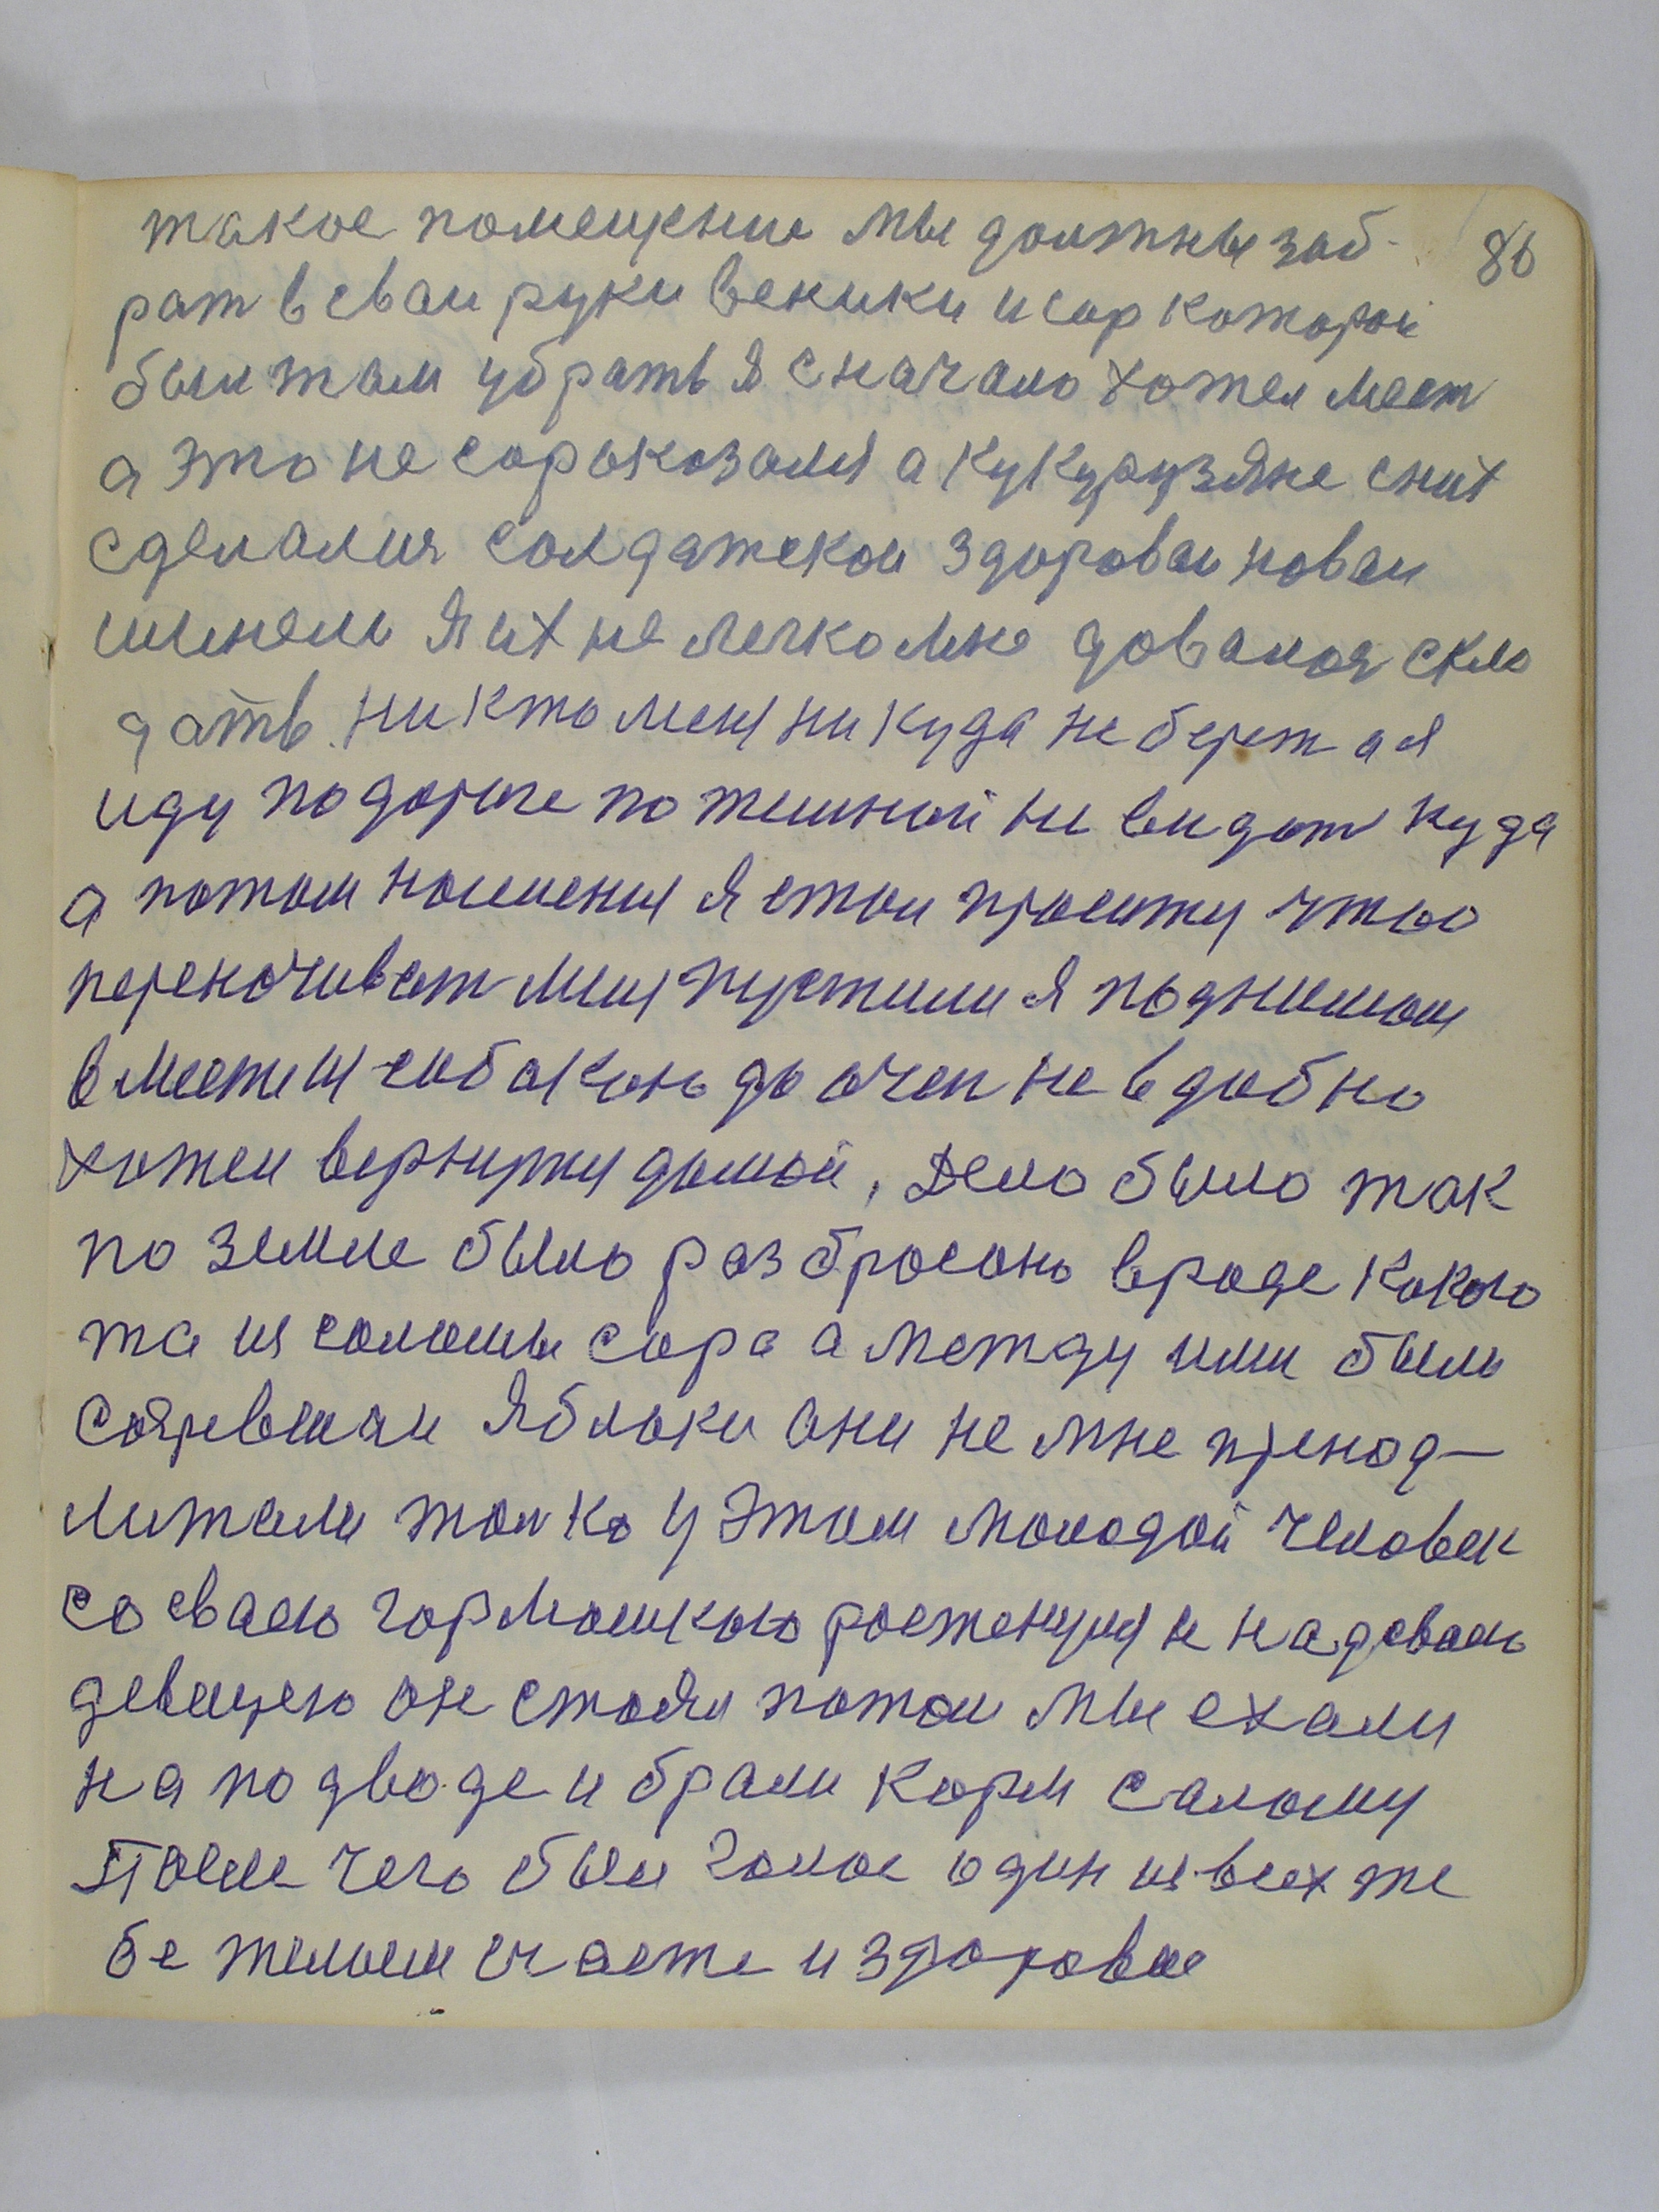 такое помещение мы должны заб-
86
рат в сваи руки веники и сор которой
был там убрать я сначало хотел мест
а это не сор оказался а кукурузяне сних
сделался солдатской здоровай новай
шинели я их не легко мне довалоя скла
дать. никто меня никуда не берет а я
иду по дороге по темной не видат куда
а потом нашения я стал проситя чтоо
переночиват меня пустили я поднимаю
вместе и собой конь до очен не вдобно
хотел вернутя домой, Дело было так
по земле было разбросано вроде какого
та из соломы сора а между ими было
созревшаи Яблоки они не мне принод-
лижали толко у этом молодой человек
со сваею гармошкою ростянуля и надеваю
девицею он стоял потом мы ехали
на подводе и брали корм саламу
После чего был голос один из всех те
бе желаем счасте и здоровае